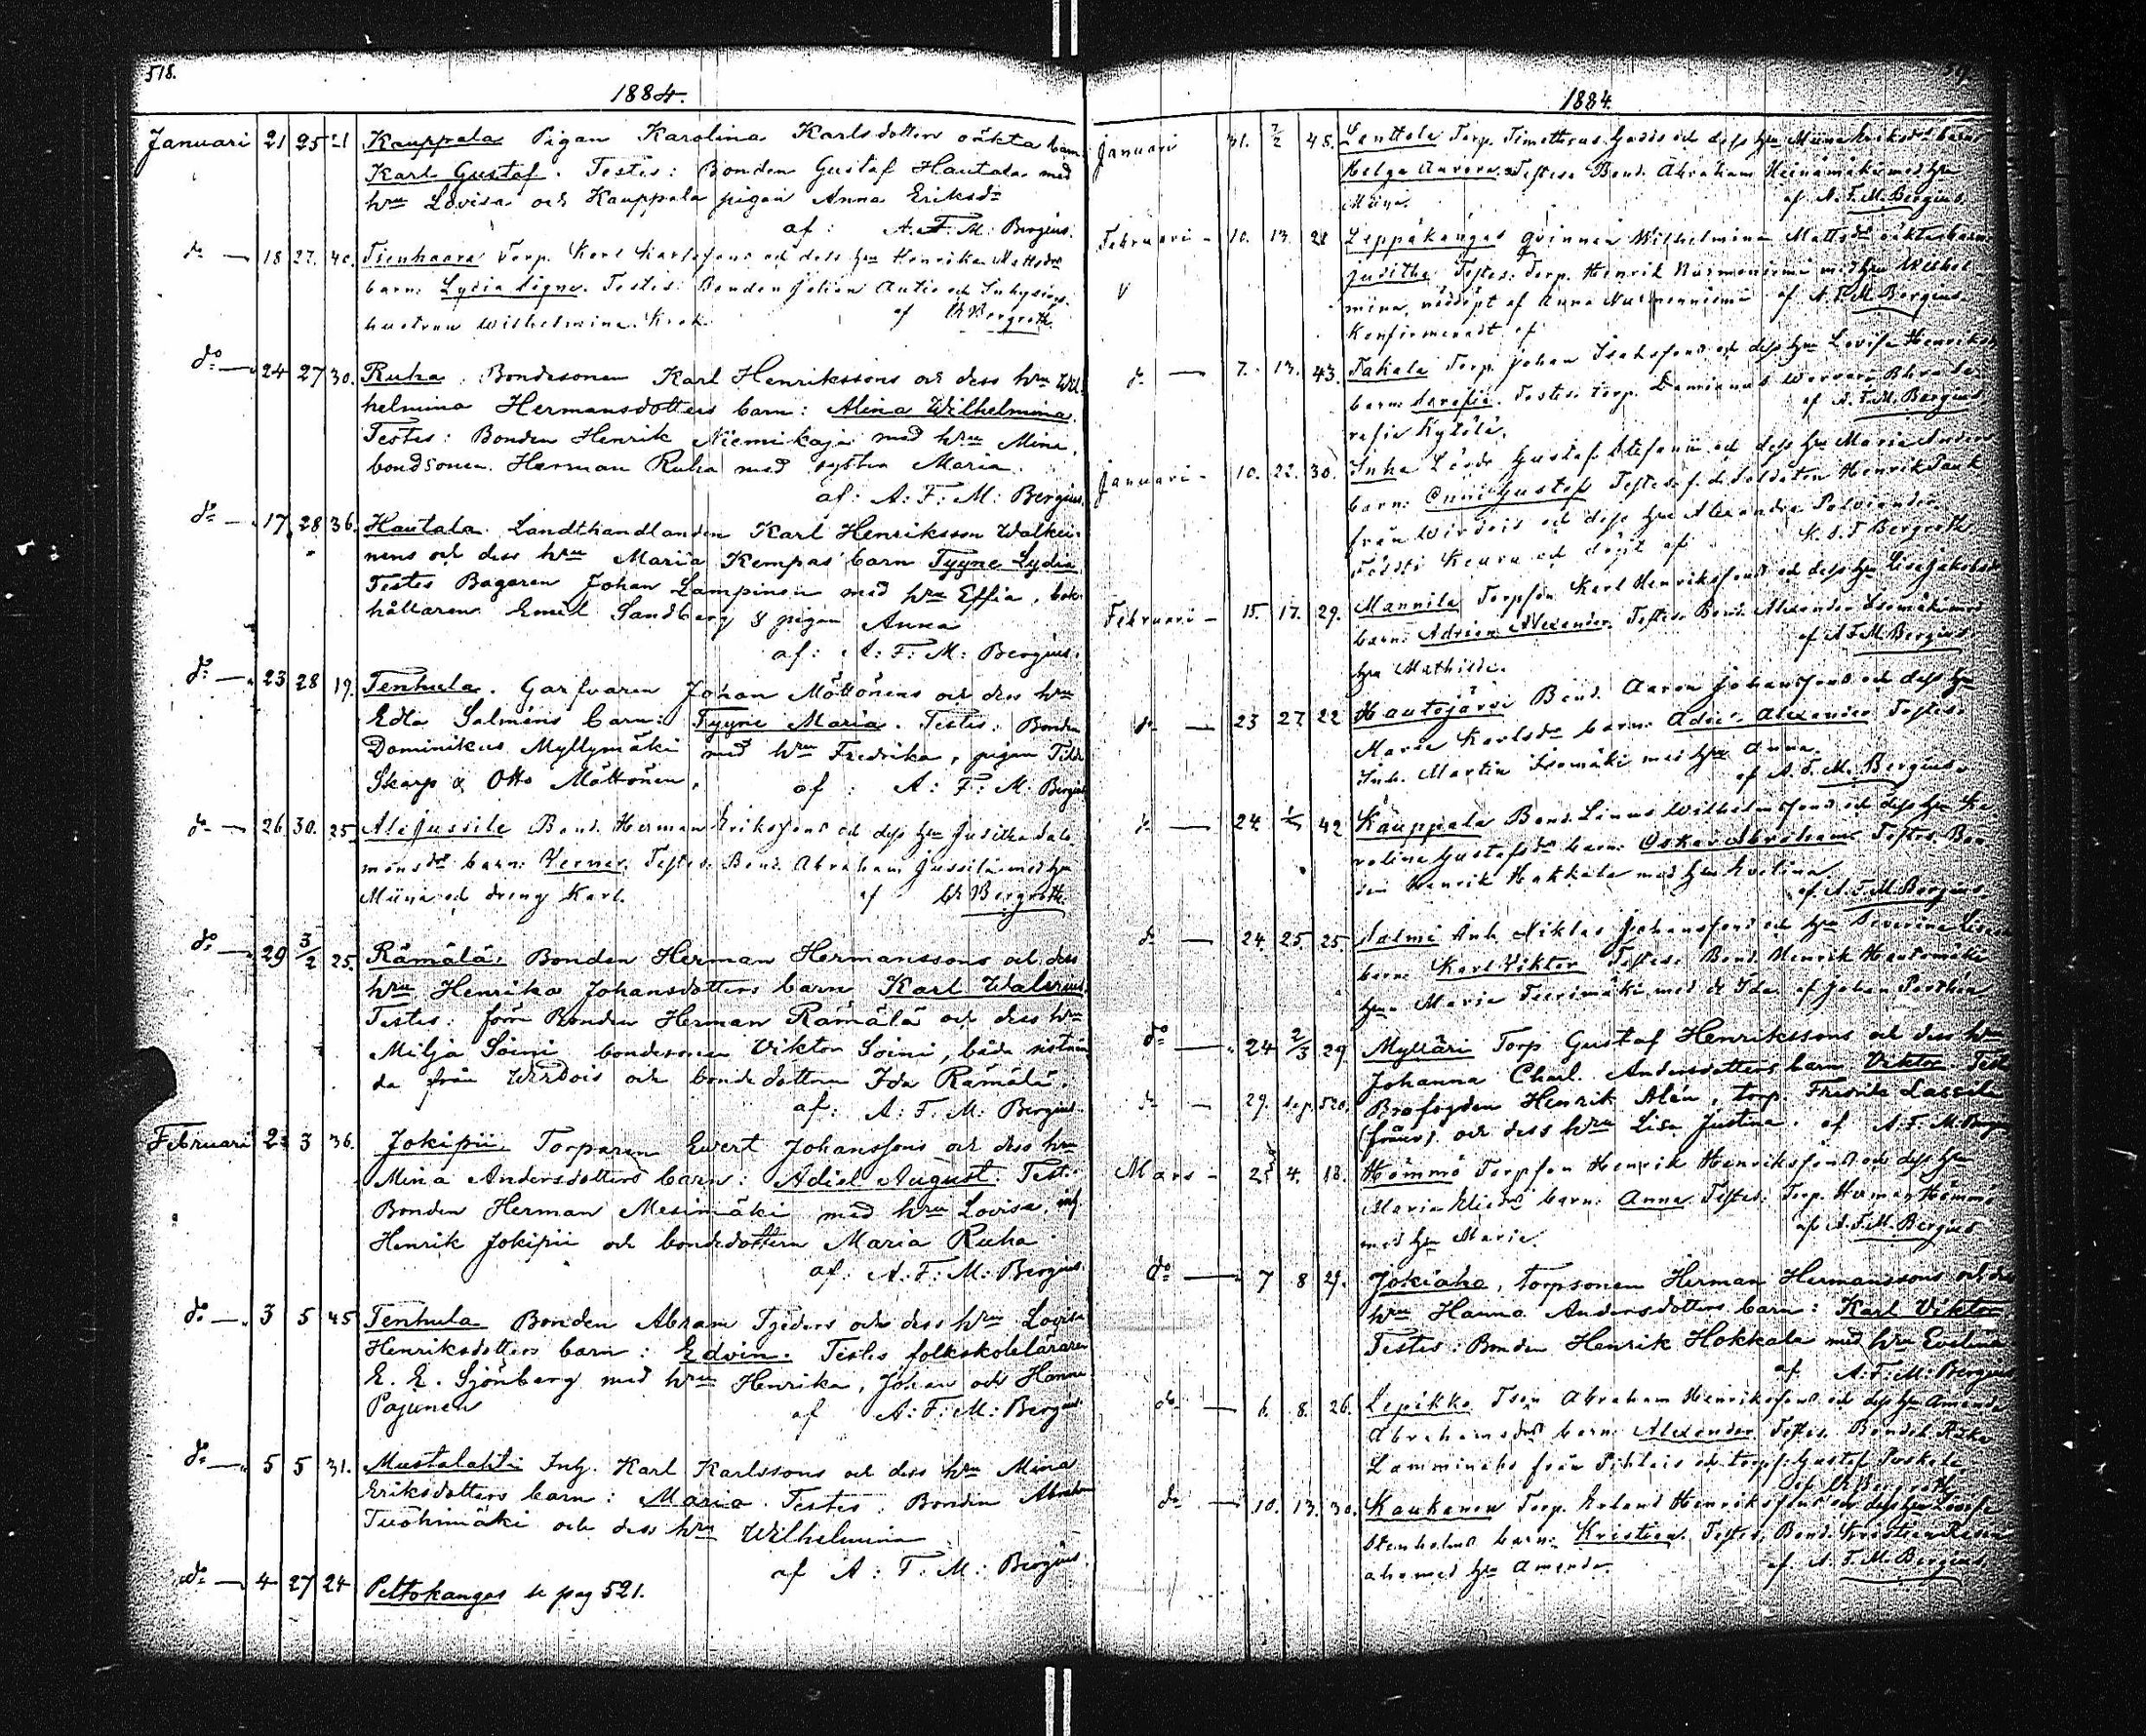 518.
1884.
Januari 21 25 21 Kauppala Pigan Karolina Karlsdotters oäkta barn
Karl Gustaf. Testes: Bonden Gustaf Hautala med
hru Lovisa och Kauppala pigan Anna Eriksdr
af: A. F. M: Bergius.
do 18 27. 40. Tienhaara Torp. Karl Karlssons och dess hru Henrika Mattsdrs
barn: Lydia Signe. Testes: Bonden Johan Autio och Inhyses
hustrun Wilhelmina Krok. af Bergroth.
do 24 27 30. Ruha. Bondesonen Karl Henrikssons och dess hru Wil-
helmina Hermansdotters barn: Alina Wilhelmina.
Testes: Bonden Henrik Niemikaja med hru Mina,
bondsonen Herman Ruha med syster Maria.
af: A: F: M: Bergius.
do 17 28 36. Hautala. Landthandlanden Karl Henriksson Walkei-
nens och dess hru Maria Kempas barn Tyyne Lydia
Testes Bagaren Johan Lampinen med hru Effia, bok-
hållaren Emil Sandberg & pigan Anna
af: A: F: M: Bergius.
do 23 28 19. Tenhula. Garfvaren Johan Möttönens och dess hru
Edla Salmins barn: Tyyne Maria. Testes: Bonden
Dominikus Myllymäki med hru Fredrika, pigan Tilda
Skarp & Otto Möttönen. af: A: F: M: Bergius
do 26. 30. 25. Alajussila Bond. Herman Erikssons och dess hru Juditha Salo-
monsdrs barn: Verner. Testes: Bond. Abraham Jussila med hru
Miina och dreng Karl. af Bergroth.
do 29 3/2 25. Rämälä. Bonden Herman Hermanssons och dess
hru Henrika Johansdotters barn Karl Walerius.
Testes: förre Bonden Herman Rämälä och dess hru
Milja Soini bondesonen Viktor Soini, båda sistnäm
da från Wirdois och bondedottern Ida Rämälä.
af: A: F: M: Bergius.
Februari 2 3 36. Jokipii. Torparen Evert Johanssons och dess hru
Mina Andersdotters barn: Adiel August. Test:
Bonden Herman Mesimäki med hru Lovisa,
Henrik Jokipii och bondedottern Maria Ruha
af: A: F: M: Bergius.
do 3 5 45 Tenhula Bonden Abram Tgeders och dess hru Lovisa
Henriksdotters barn: Edvin. Testes folkskoleläraren
E. E. Sjönberg med hru Henrika, Johan och Hanna
Pajunen af A: F: M: Bergius.
do 5 5 31. Mustalahti Inh. Karl Karlssons och dess hru Mina
Eriksdotters barn: Maria. Testes: Bonden Abrah
Tuohimäki och dess hru Wilhelmina
af A: F: M: Bergius.
do 4 27 24 Peltokangas se pag 521.
1884
Januari 31. 7/2 45. Lenttola Torp. Timotheus och dess hru Miina Eriksdrs barn
Helga Aurora. Testes: Bond. Abraham Heinämäki med hru
Miina. af A. F. M. Bergius.
Februari 10. 13. 28 Leppäkangas Qvinnan Wilhelmina Mattsdrs oäkta barn
Juditha Testes: Torp. Henrik Nurmenniemi med hru Wilhel-
mina, nöddöpt af Anna Nurmenniemi
Konfirmeradt af af A. F. M. Bergius.
do 7. 13. 43. Takala Torp. Johan Isakssons och dess hru Lovisa Henriksd
barn: Serafia. Testes: torp. Damianus
rafia Kytölä. af A. F. M. Bergius
Januari 10. 22. 30. Inha Gustaf Stefanii och dess hru Maria Anders
barn: Onni Gustaf Testes: f. d. Soldaten Henrik Tank
från Wirdois och dess hru Alexandra
Keuru och döpt af K. J. F. Bergroth
Februari 15. 17. 29. Mannila Torpson Karl Henrikssons och dess hru Lisa Jakobsdrs
barn: Adrian Alexander Testes: Bond. Alexander Isomäki med
hru Mathilda. af A. F. M. Bergius
do 23 27 22 Hautojärvi Bond. Aaron Johanssons och dess hru
Maria Karlsdrs barn: Adiel Alexander Testes:
Inh. Martin Isomäki med hru Anna.
af A. F. M. Bergius.
do 24 42 Kauppala Bond. Linus Wilhelmssons och dess hru Ka
rolina Gustafsdrs barn: Oskar Abraham Testes: Bon
den Henrik Hokkala med hru Evelina
af A. F. M. Bergius.
do 24. 25. 25. Salmi Niklas Johanssons och hru Severina
barn: Karl Viktor Testes: Bond. Henrik Hautamäki
hru Maria med dr Ida. af Johan
do 24 2/3 29 Mylläri Torp Gustaf Henrikssons och dess hru
Johanna Charl. Andersdotters barn Viktor. Test
do 29. se p. 520. Brofogden Henrik Alén, torp. Fredrik Lassila
(frånv.) och dess hru Lisa Justina. af A. F. M. Bergius
Mars 2 4. 18. Hömmö Torpson Henrik Henrikssons och dess hru
Maria barn: Anna Testes: Torp. Herman Hömmö
med hru Maria. af A. F. M. Bergius
do 7 8 29. Jokiaho, torpsonen Herman Hermanssons och dess
hru Hanna Andersdotters barn: Karl Viktor
Testes: Bonden Henrik Hokkala med hru Evelina
af A: F: M: Bergius
do 6. 8. 26. Lepikko Tson Abraham Henrikssons och dess hru Amanda
Abrahamsdrs barn: Alexander Testes: Bondes
Lamminaho från Pihlais och torps. Gustaf Puskala
af Bergroth
do 10. 13. 30. Kaukonen Torp. Erland Henrikssons och dess hru Lovisa
Stenholms barn: Kristian. Testes: Bond. Kristian
aho med hru Amanda. af A. F. M. Bergius.